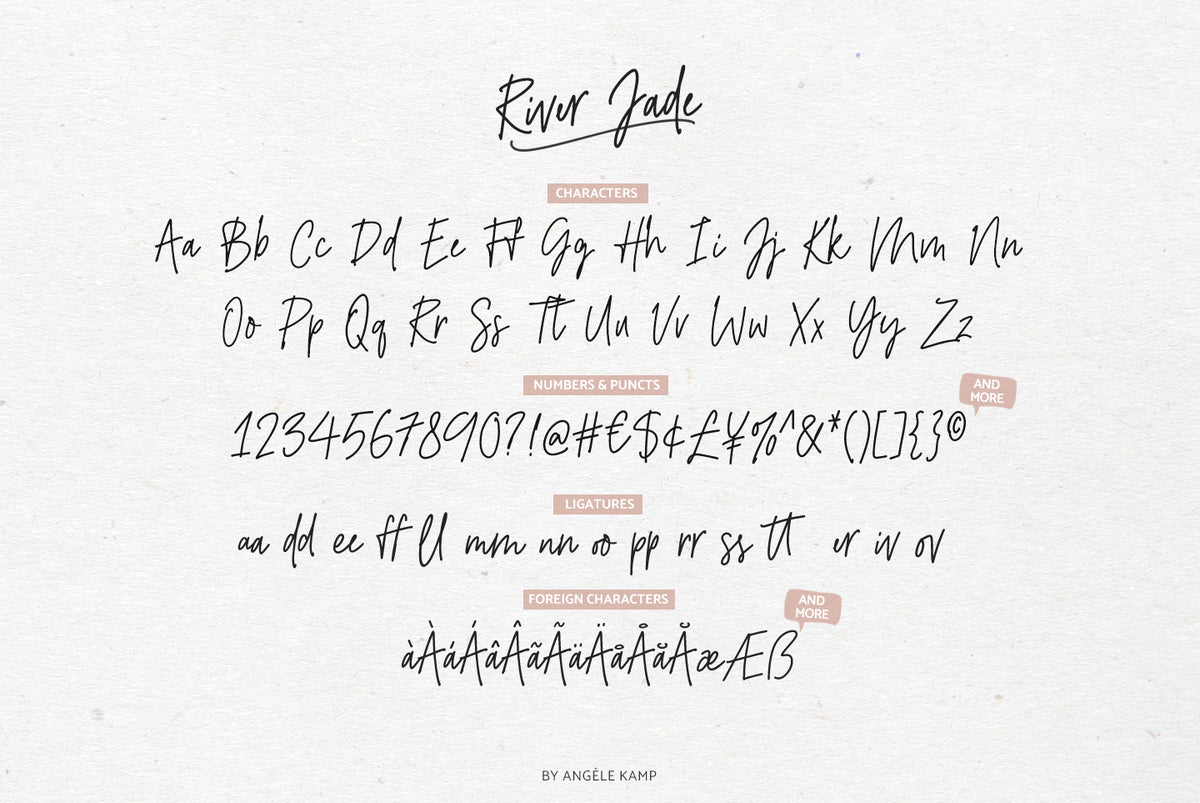 River Jade
CHARACTERS
Aa Bb Cc Dd Ee Ff Gg Hh Ii Jj Kk Mm Nn
Oo Pp Qq Rr Ss Tt Uu Vv Ww Xx Yy Zz
NUMBERS & PUNCTS
AND
MORE
1234567890?!@#€$¢£¥%^&*()[]{}©
LIGATURES
aa dd ee ff ll mm nn oo pp rr ss tt er iv ov
FOREIGN CHARACTERS
AND
MORE
àÀáÁâÂãÃäÄåÅăĂæÆß
BY ANGÈLE KAMP